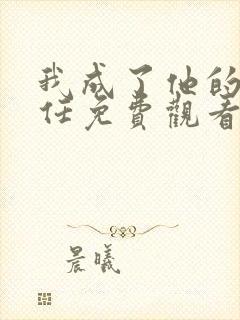 我成了他的
任免費觀看
晨曦